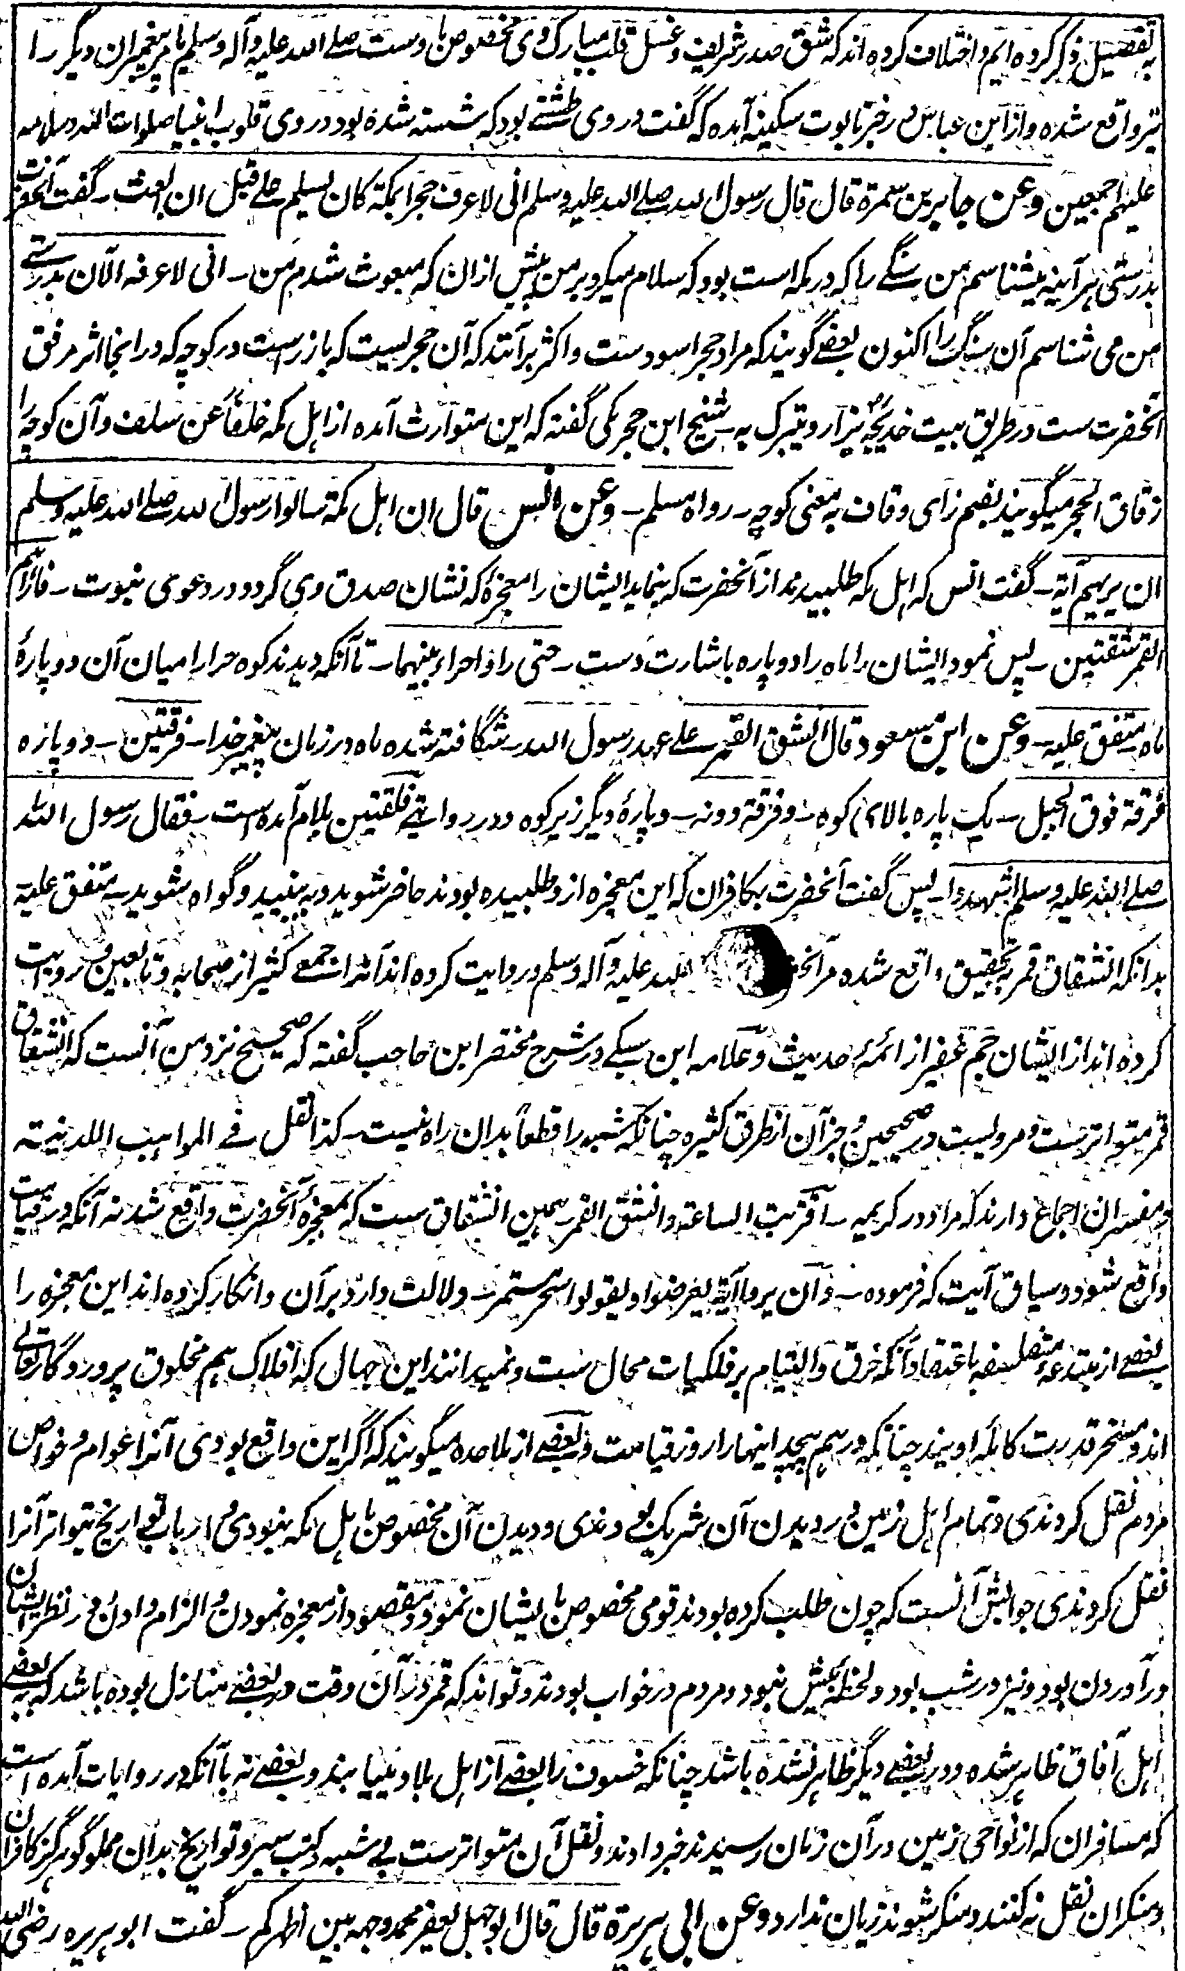 بتفصیل ذکر کرده ایم و اختلاف کرده اند که شق صدر شریف و غسل قلب مبارک وی مخصوص باوست صلے الله علیه وآله وسلم یا مر پیغمبران دیگر را
نیز واقع شده و از ابن عباس در خبر تابوت سکینه آمده که گفت در وی طشتے بود که شسته شده بود در وی قلوب انبیا صلوات الله وسلامه
علیهم اجمعین وعن جابر بن سمرة قال قال رسول الله صلے الله علیه وسلم انی لاعرف حجرا بمکة کان یسلم علے قبل ان ابعث - گفت آنحضرت
بدرستی هر آینه میشناسم من سنگے را که در مکه است بود که سلام میکرد بر من پیش ازان که مبعوث شدم من - انی لاعرفه الآن بدرستے
من می شناسم آن سنگ را اکنون بعضے گویند که مراد حجر اسودست و اکثر برآنند که آن حجریست که بارزست در کوچه که در انجا اثر مرفق
آنحضرت ست در طریق بیت خدیجه یزار و یتبرک به - شیخ ابن حجر مکی گفته که این متوارث آمده از اهل مکه خلفاً عن سلف و آن کوچه را
زقاق الحجر میگویند بضم زای و قاف به معنی کوچه - رواه مسلم - وعن انس قال ان اهل مکة سالوا رسول الله صلے الله علیه وسلم
ان یریهم آیة - گفت انس که اهل مکه طلبیدند از آنحضرت که بنماید ایشان را معجزهٔ که نشان صدق وی گردد در دعوی نبوت - فاراهم
القمر شقتین - پس نمود ایشان را ماه را دو پاره باشارت دست - حتی راوا حراء بینهما - تا آنکه دیدند کوه حرا را میان آن دو پارهٔ
ماه متفق علیه - وعن ابن مسعود قال انشق القمر علے عهد رسول الله - شگافته شده ماه در زمان پیغمبر خدا - فرقتین - دو پاره
فرقة فوق الجبل - یک پاره بالای کوه - و فرقة دونه - و پارهٔ دیگر زیر کوه و در روایتے فلقتین بلام آمده است - فقال رسول الله
صلے الله علیه وسلم اشهدوا - پس گفت آنحضرت بکافران که این معجزه ازو طلبیده بودند حاضر شوید و به بینید و گواه شوید - متفق علیه
بدانکه انشقاق قمر به تحقیق واقع شده مر آنحـ الله علیه وآله وسلم و روایت کرده اند آنرا جمعے کثیر از صحابه و تابعین و روایت
کرده اند از ایشان جم غفیر از ائمهٔ حدیث و علامه ابن سبکے در شرح مختصر ابن حاجب گفته که صحیح نزد من آنست که انشقاق
قمر متواترست و مرویست در صحیحین و جز آن از طرق کثیره چنانکه شبه را قطعاً بدان راه نیست - کذا نقل فے المواهب اللدنیه
و مفسران اجماع دارند که مراد در کریمه - اقتربت الساعة وانشق القمر - همین انشقاق ست که معجزهٔ آنحضرت واقع شد نه آنکه در قیامت
واقع شود و سیاق آیت که فرموده - وان یروا آیة یعرضوا ویقولوا سحر مستمر - دلالت دارد بر آن و انکار کرده اند این معجزه را
بعضے از مبتدعه و متفلسفه باعتقاد آنکه خرق و التیام بر فلکیات محال ست و نمیدانند این جهال که افلاک هم مخلوق پروردگار تعالے
اند و مسخر قدرت کامله اویند چنانکه در هم پیچد اینها را روز قیامت و بعضے از ملاحده میگویند که اگر این واقع بودی آنرا عوام و خواص
مردم نقل کردندی و تمام اهل زمین در دیدن آن شریک بودندی و دیدن آن مخصوص باهل مکه نبودی و ارباب تواریخ بتواتر آنرا
نقل کردندی جوابش آنست که چون طلب کرده بودند قومی مخصوص بایشان نمود و مقصود از معجزه نمودن و الزام دادن در نظر ایشان
درآوردن بود و نیز در شب بود و لحظهٔ بیش نبود و مردم در خواب بودند و تواند که قمر در آن وقت در بعضے منازل بوده باشد که به بعضے
اهل آفاق ظاهر شده و در بعضے دیگر ظاهر نشده باشد چنانکه خسوف را بعضے از اهل بلاد مییابند و بعضے نه با آنکه در روایات آمده است
که مسافران که از نواحی زمین در آن زمان رسیدند خبر دادند و نقل آن متواترست بے شبه و کتب سیر و تواریخ بدان مملو گو هرگز کافران
و منکران نقل نه کنند و منکر شوند زیان ندارد وعن ابی هریرة قال قال ابو جهل یعفر محمد وجهه بین اظهرکم - گفت ابو هریره رضی الله